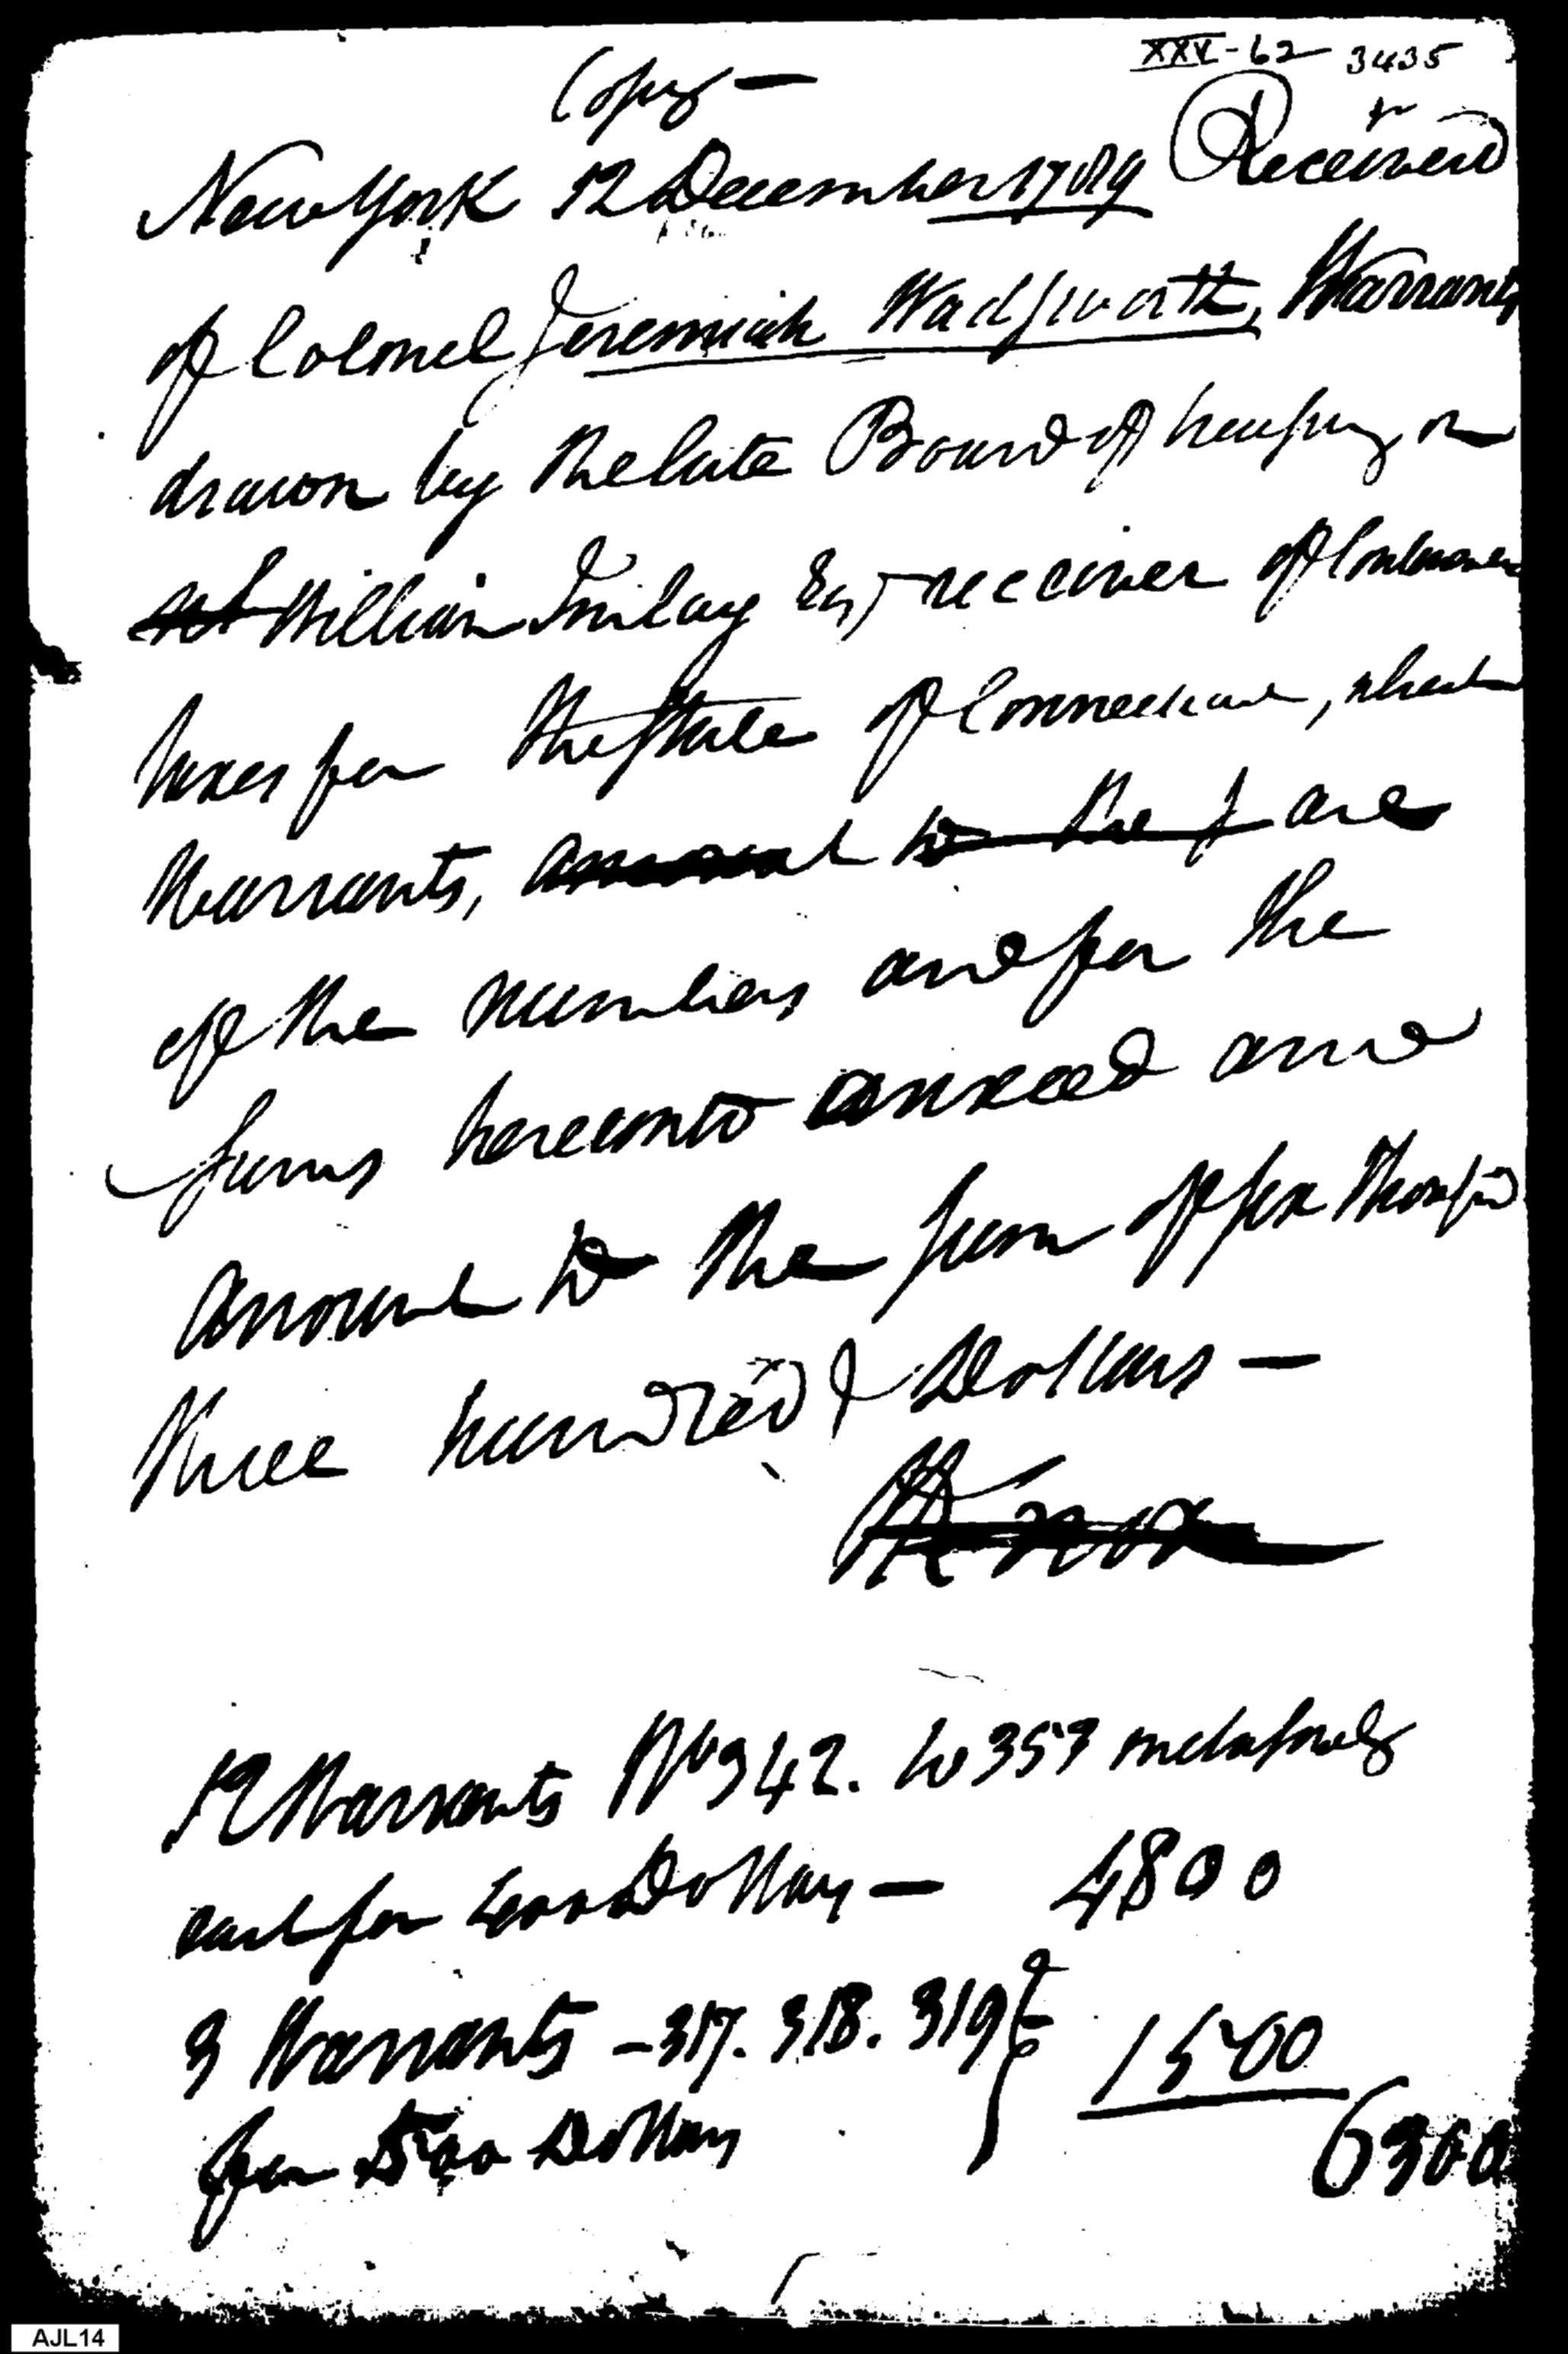 XXV-62 3435
Copy —
New York 12 December 1789 Received
of Colonel Jeremiah Wadsworth, Warrants
drawn by the late Board of treasury on
William Imlay Esqr receiver of Continental
taxes for the state of Connecticut, which
Warrants, amount to the f are
of the numbers and for the
sums hereunto annexed and
amount to the sum of six thousand
three hundred Dollars —
HKnox
12 Warrants No 342. to 353 inclusively
each for 400 Dollars — 4800
3 Warrants - 317. 318. 319 } 1500
for 500 Dollars
6300
AJL14